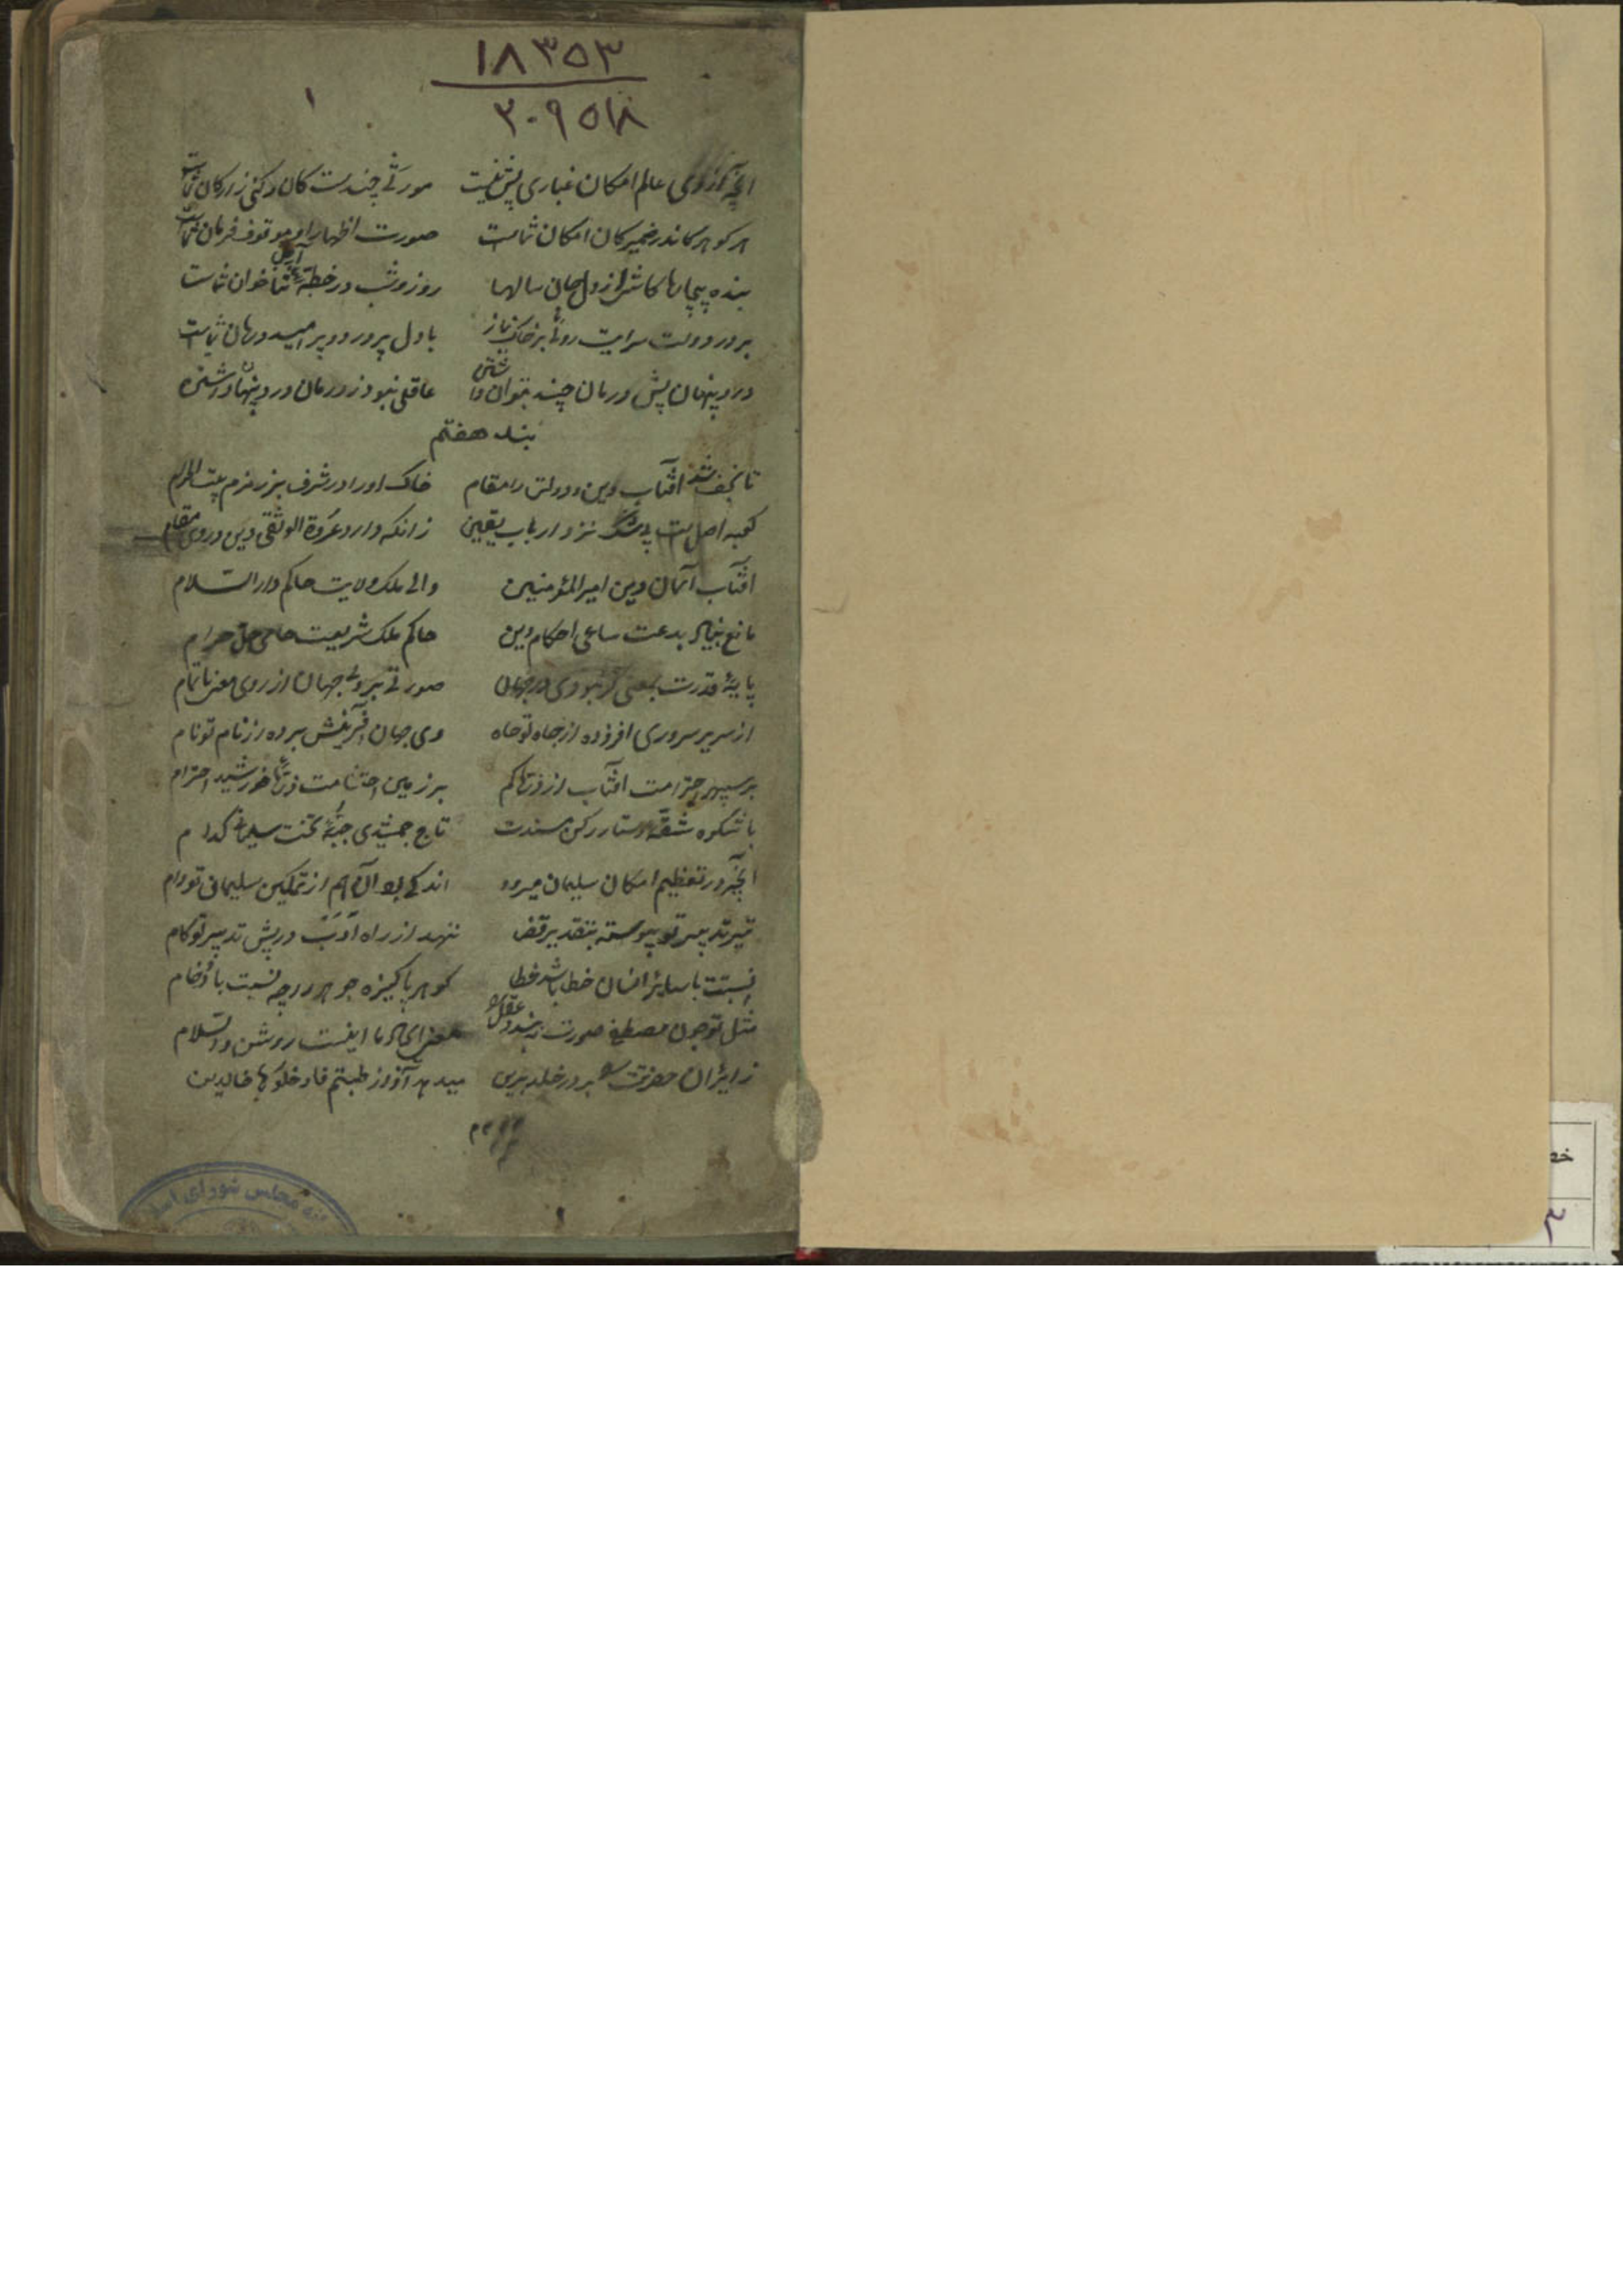 ۱۸۳۵۳
۳۰۹۵۱۸
۱
آنچه عالم امکان غباری بیش نیست صورتی چندست کان رکنی ز ارکان شماست
هر گوهر کاندر ضمیر کان امکان شماست صورت اظهار او موقوف فرمان شماست
بنده بیچاره کاشی از دل و جان سالها روز و شب در خطه آمل ثناخوان شماست
بر در دولت سرایت روی بر خاک نیاز با دل پر درد و پر امید درمان شماست
درد پنهان پیش درمان چند بتوان داشتن عاقلی نبود ز درمان درد پنهان داشتن
بند هفتم
تا نجف شد آفتاب دین و دولت را مقام خاک او را در شرف بر زمزم بیت الحرام
کعبه اصل است نزد ارباب یقین زانکه دارد عروة الوثقی دین در وی مقام
آفتاب آسمان دین امیر المؤمنین والی ملک ولایت حاکم دار السلام
مانع بنیاد بدعت ساعی احکام دین حاکم ملک شریعت حامی حل حرام
پایهٔ قدرت بمعنی گر نبودی در جهان صورتی بودی جهان از روی معنی ناتمام
از سریر سروری افزوده از جاه تو جاه وی جهان آفرینش برده از نام تو نام
بر سپهر احترامت آفتاب از ذرّها کم بر زمین احتشامت ذرّها خورشید احترام
با شکوه شقّه دستار رکن مسندت تاج جمشیدی چه تخت سلیمانی کدام
آنچه در تعظیم امکان سلیمان میرود اندکی بود آن هم از تمکین سلیمانی تو وام
تیر تدبیر تو پیوسته بتقدیر قضا ننهد از راه ادب در پیش تدبیر تو کام
نسبتت با سایر انسان خطا باشد خطا گوهر پاکیزه جوهر را چه نسبت با رخام
مثل تو چون مصطفی صورت نبندد عقل را معنی ایمان ما اینست روشن والسلام
زایران حضرتت را بر در خلد برین میدهد آواز طبتم فادخلوها خالدین